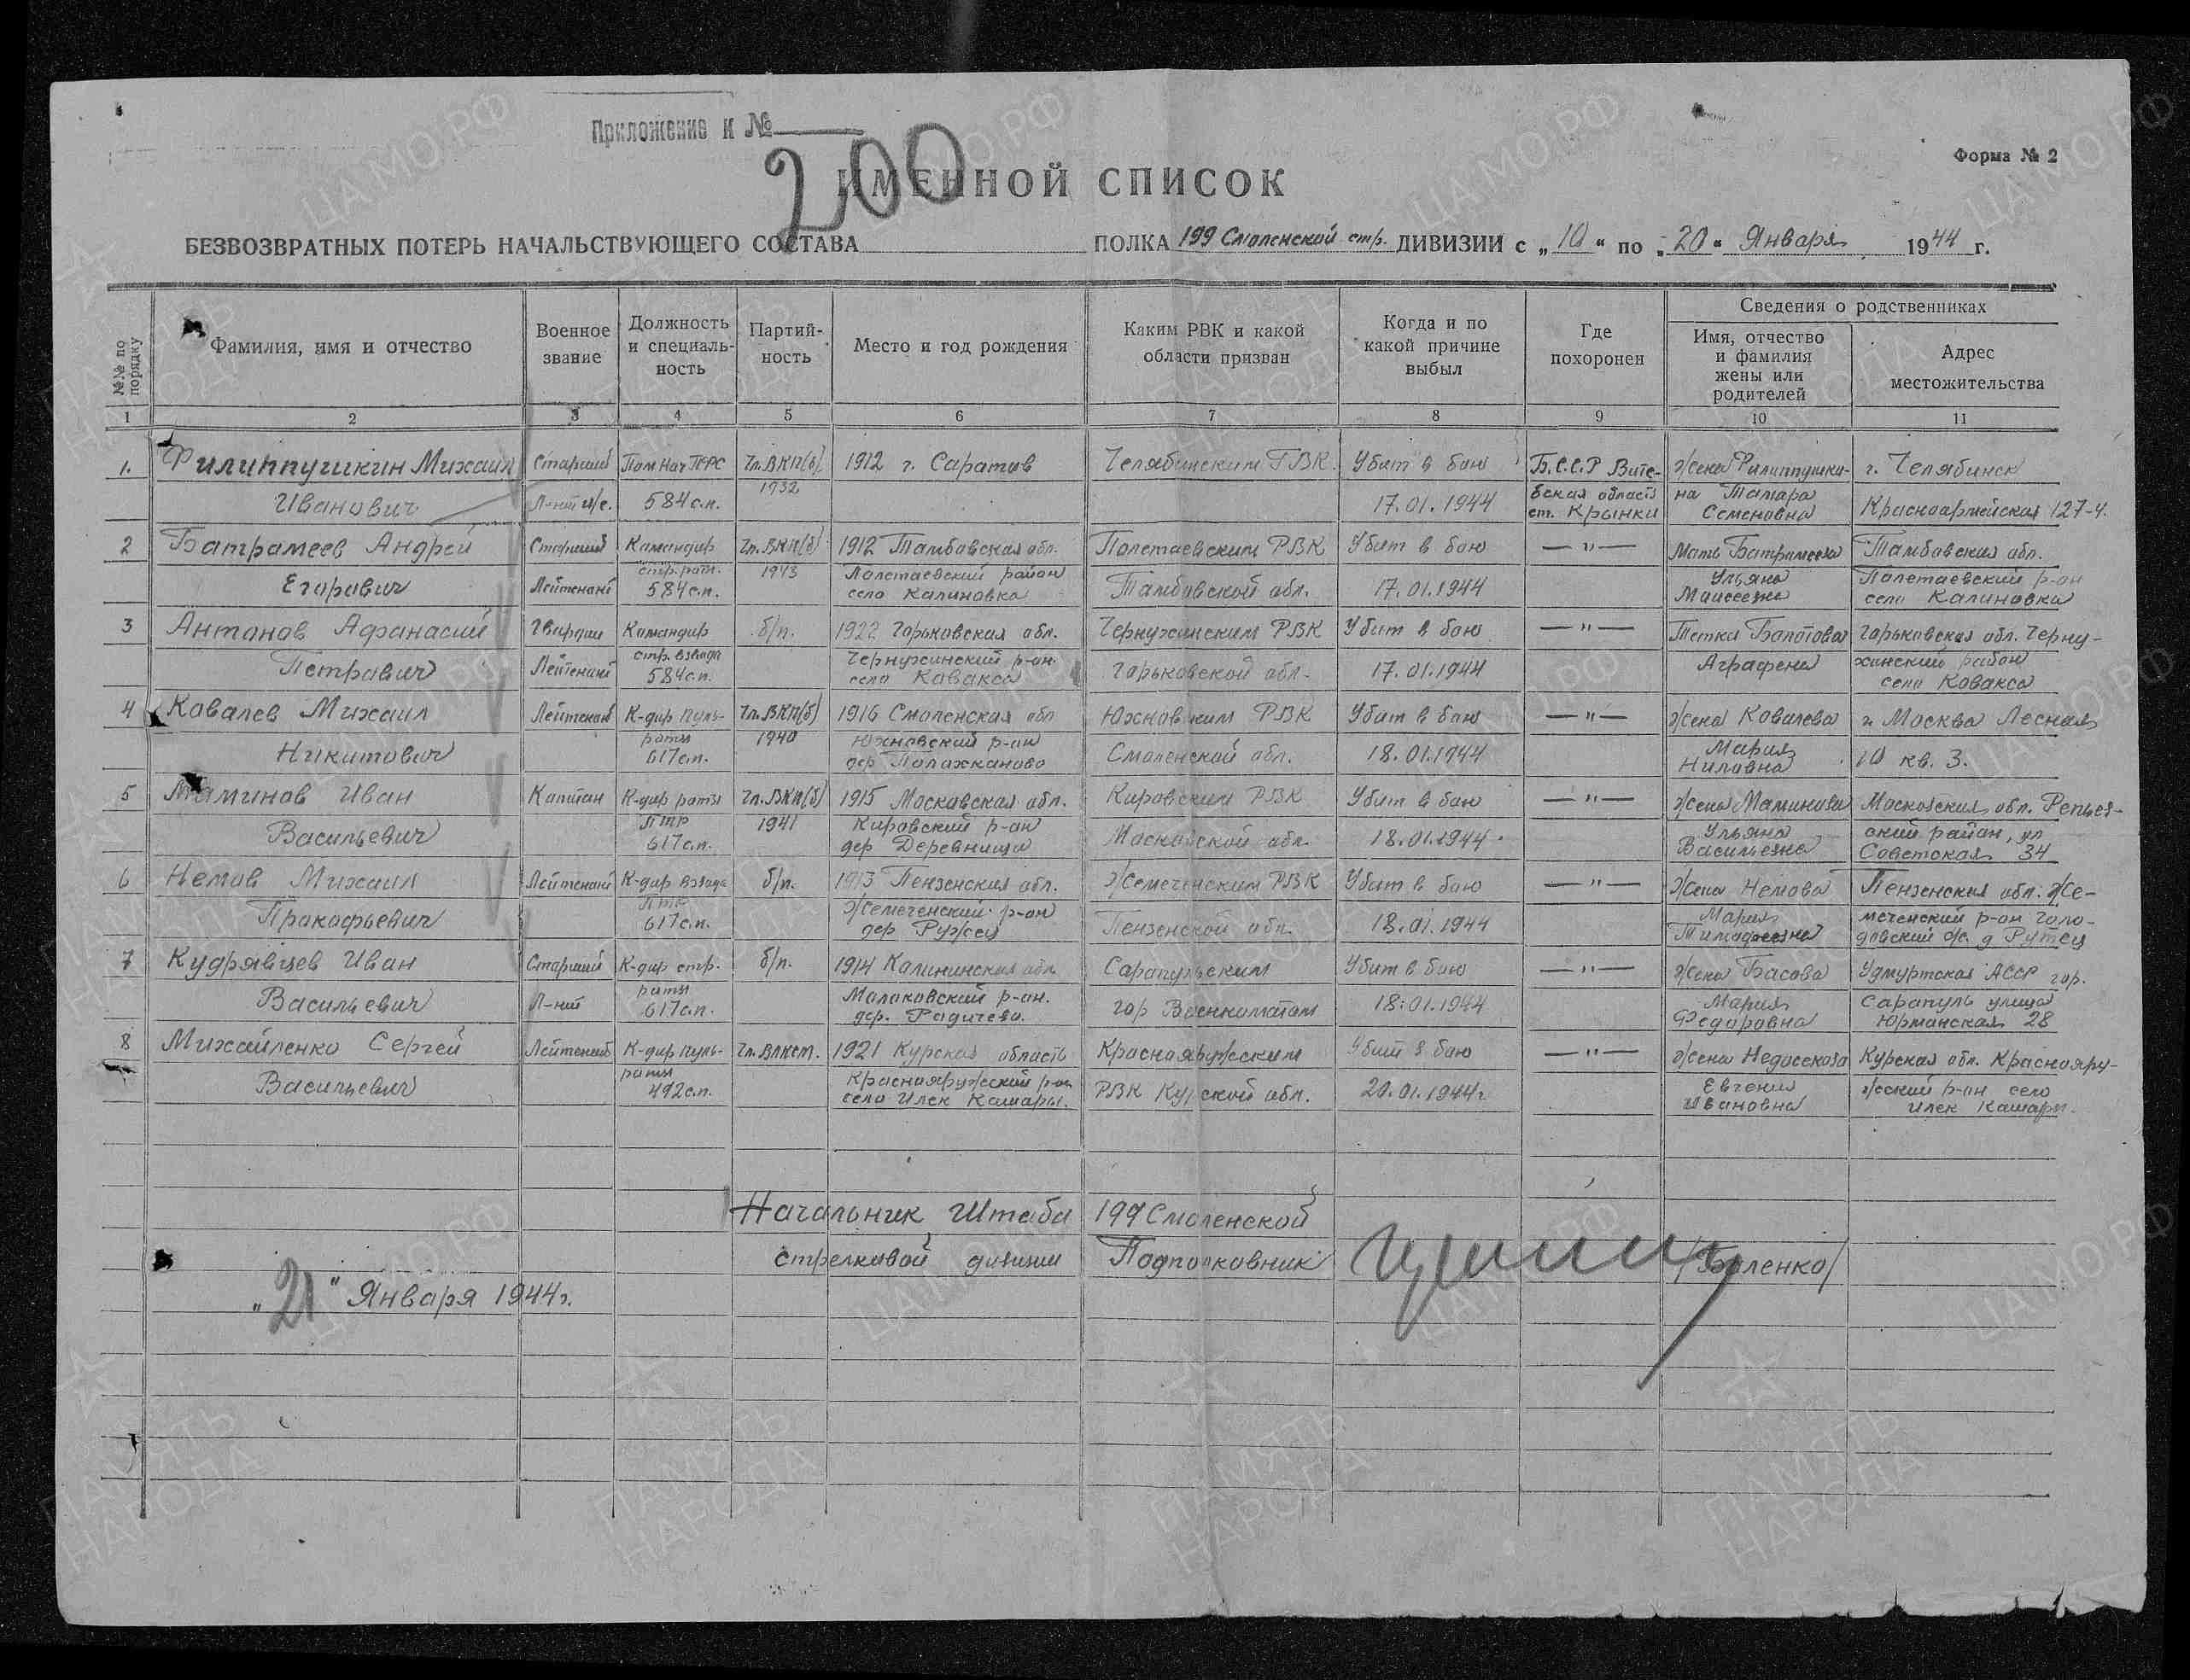 Приложение к №
200
Форма № 2
ИМЕННОЙ СПИСОК
БЕЗВОЗВРАТНЫХ ПОТЕРЬ НАЧАЛЬСТВУЮЩЕГО СОСТАВА ПОЛКА 199 Смоленской стр. ДИВИЗИИ с „10“ по „20“ Января 1944 г.
№№ по порядку
Фамилия, имя и отчество
Военное звание
Должность и специаль-ность
Партий-ность
Место и год рождения
Каким РВК и какой области призван
Когда и по какой причине выбыл
Где похоронен
Сведения о родственниках
Имя, отчество и фамилия жены или родителей
Адрес местожительства
1 2 3 4 5 6 7 8 9 10 11
1. Филиппушкин Михаил Старший Пом Нач ПФС Чл.ВКП(б) 1912 г. Саратов Челябинским ГВК. Убит в бою Б.С.С.Р Вите- жена Филиппушки- г. Челябинск
Иванович Л-нт и/с. 584 с.п. 1932 17.01.1944 бская область ст. Крынки на Тамара Семеновна Красноармейская 127-4.
2 Батрамеев Андрей Старший Командир Чл.ВКП(б) 1912 Тамбовская обл. Полетаевским РВК Убит в бою — " — Мать Батрамеева Тамбовская обл.
Егорович Лейтенант стр. роты. 584 с.п. 1943 Полетаевский район село Калиновка Тамбовской обл. 17.01.1944 Ульяна Моисеевна Полетаевский р-он село Калиновка
3 Антонов Афанасий Гвардии Командир б/п. 1922 Горьковская обл. Чернухинским РВК Убит в бою — " — Тетка Болотова Горьковская обл. Черну-
Петрович Лейтенант стр. взвода 584 с.п. Чернухинский р-он село Ковакса Горьковской обл. 17.01.1944 Аграфена хинский район село Ковакса
4 Ковалев Михаил Лейтенант К-дир пуль- Чл.ВКП(б) 1916 Смоленская обл Юхновским РВК Убит в бою — " — жена Ковалева г. Москва Лесная
Никитович роты 617 с.п. 1940 Юхновский р-он дер Смоленской обл. 18.01.1944 Мария Ниловна 10 кв. 3.
5 Маминов Иван Капитан К-дир роты Чл.ВКП(б) 1915 Московская обл. Кировским РВК Убит в бою — " — жена Маминова Московская обл.
Васильевич ПТР 617 с.п. 1941 Кировский р-он дер Деревнищи Московской обл. 18.01.1944 Ульяна Васильевна ский район, ул Советская 34
6 Немов Михаил Лейтенант К-дир взвода б/п. 1913 Пензенская обл. Жемеченским РВК Убит в бою — " — жена Немова Пензенская обл. Же-
Прокофьевич ПТР 617 с.п. Жемеченский р-он дер Пензенской обл. 18.01.1944 Мария Тимофеевна меченский р-он
7 Кудрявцев Иван Старший К-дир стр. б/п. 1914 Калининская обл Сарапульским Убит в бою — " — жена Басова Удмуртская АССР гор.
Васильевич Л-нт роты 617 с.п. Молоковский р-он. дер. Радичево. гор Военкоматом 18.01.1944 Мария Федоровна Сарапуль улица Юрманская 28
8 Михайленко Сергей Лейтенант К-дир пуль- Чл.ВЛКСМ. 1921 Курская область Краснояружским Убит в бою — " — жена Краснояру-
Васильевич роты 492 с.п. Краснояружский р-он село Илек Кошары. РВК Курской обл. 20.01.1944г. Евгения Ивановна жский р-он село Илек Кошары.
Начальник Штаба 199 Смоленской
стрелковой дивизии Подполковник /Боленко/
„21“ Января 1944г.